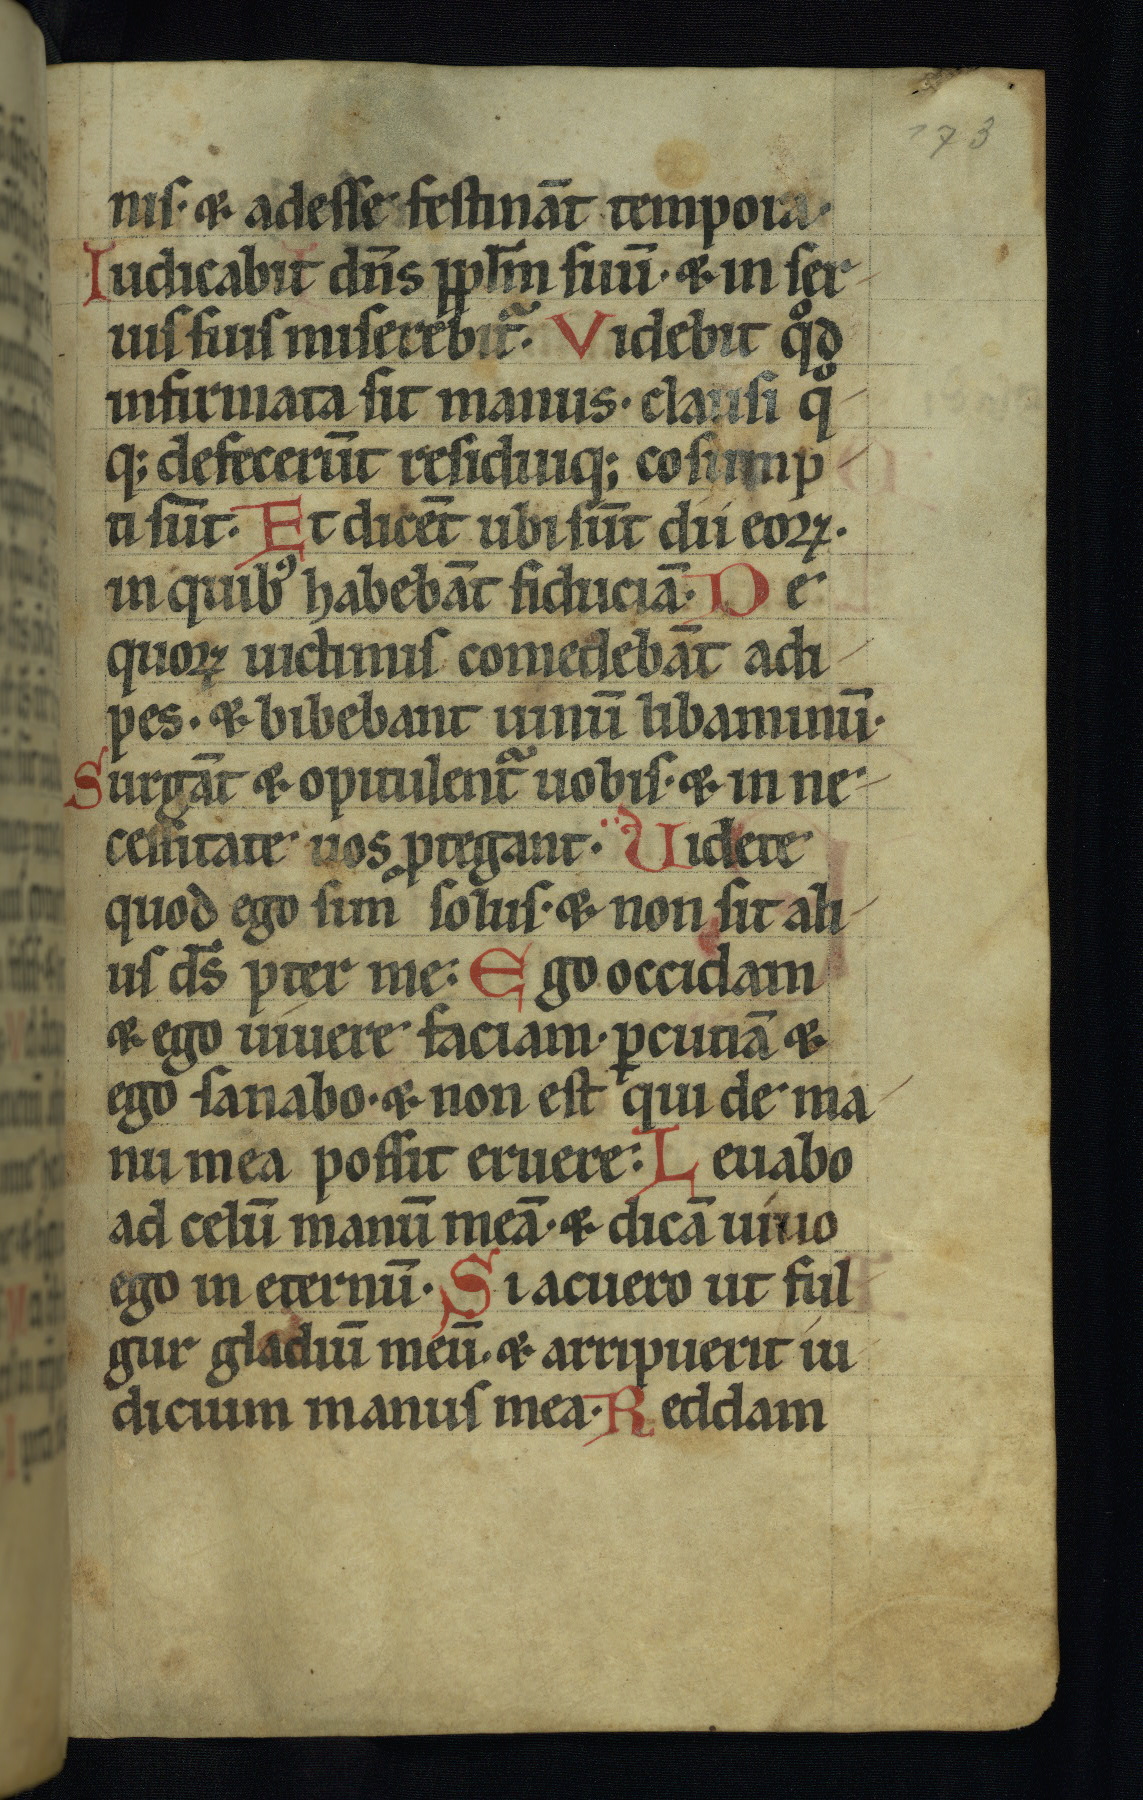 173
nis· & adesse festinant̄ tempora·
Iudicabit dn̄s ppl̄m suū· & in ser
uis suis miserebit᷑· Videbit qͦd
infirmata sit manus· clausi qͦ
q; defecerūt residuiq; cosump
ti sūt· Et dicēt ubi sūt dii eoꝝ·
in quibꝰ habebāt fiduciā· De
quoꝝ uictimis comedebāt adi
pes· & bibebant uinū libaminū·
Surgāt & opitulent᷑ uobis· & in ne
cessitate uos ꝓtegant· Uidete
quod ego sim solus· & non sit ali
us ds̄ p̄ter me: Ego occidam
& ego uiuere faciam· ꝑcutiā &
ego sanabo· & non est qui de ma
nu mea possit eruere: Leuabo
ad celū manū meā· & dicā uiuo
ego in eternū· Si acuero ut ful
gur gladiū meū· & arripuerit iu
dicium manus mea· Reddam